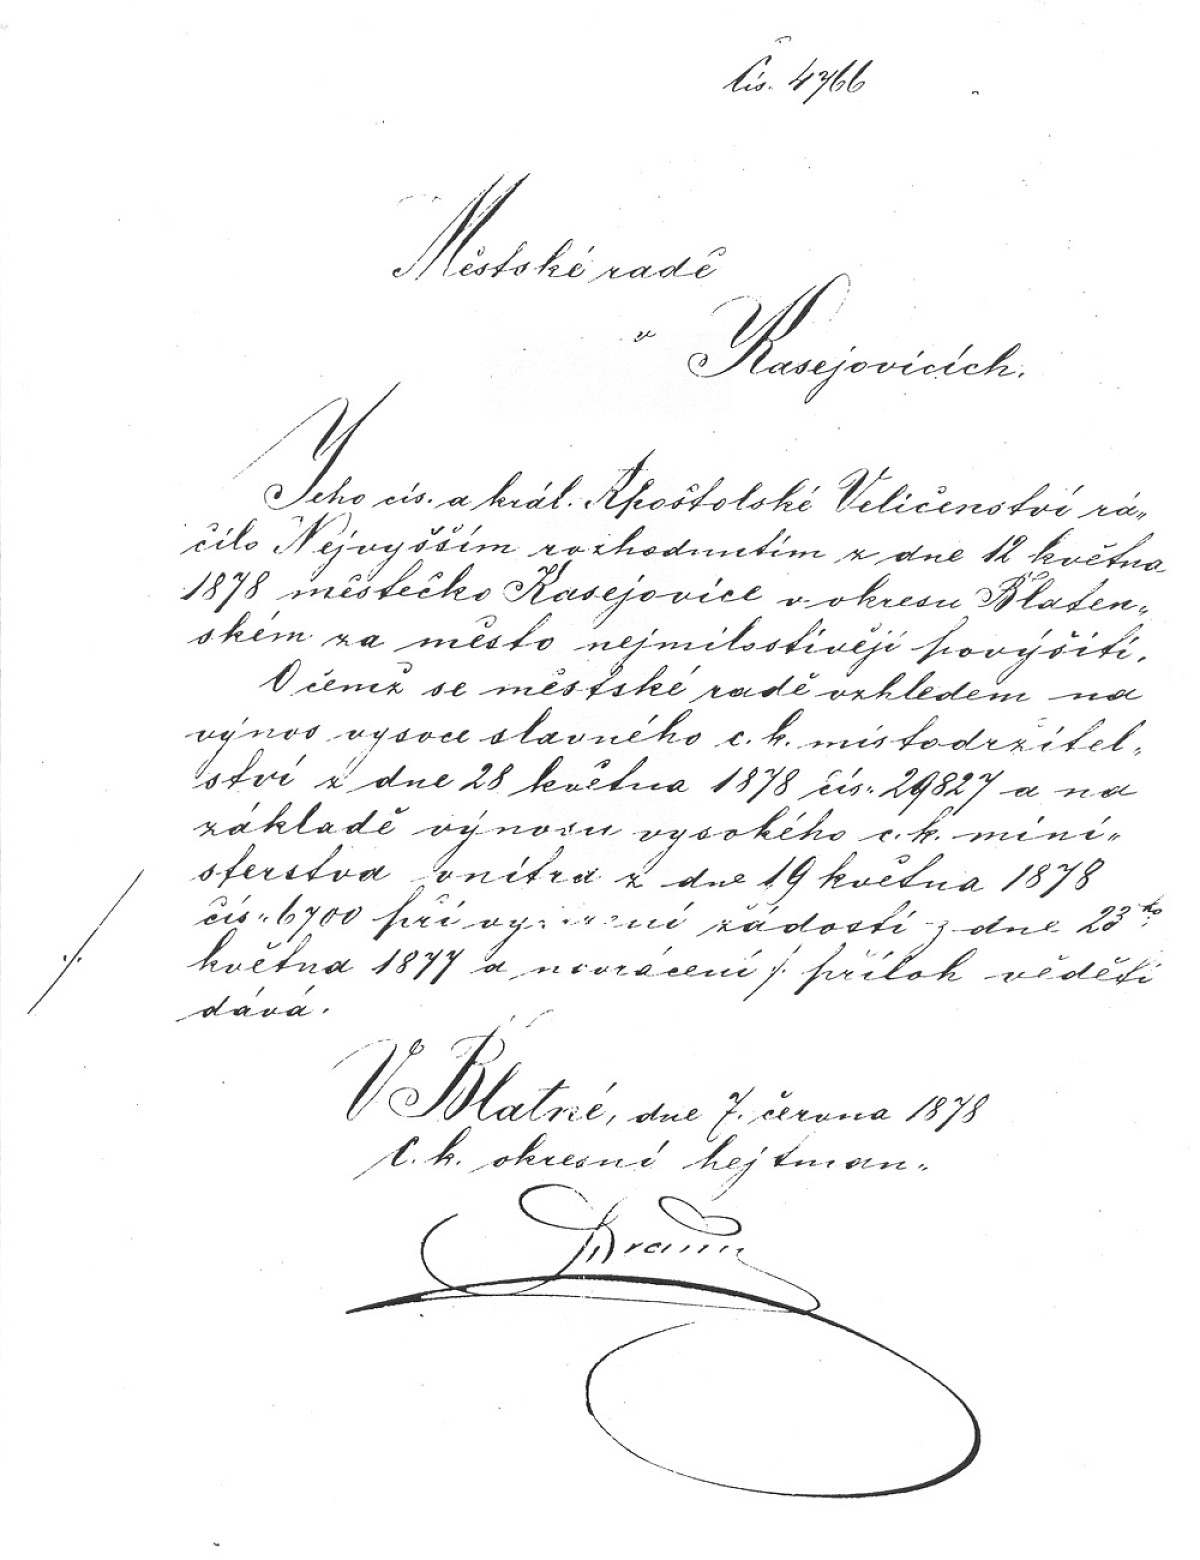 Čís. 4766
Městské radě
v
Kasejovicích.
Jeho cís. a král. Apoštolské Veličenství rá„
čilo Nejvyšším rozhodnutím z dne 12 května
1878 městečko Kasejovice v okresu Blaten„
ském za město nejmilostivěji povýšiti.
O čemž se městské radě vzhledem na
výnos vysoce slavného c. k. místodržitel„
ství z dne 28 května 1878 čís. 29827 a na
základě výnosu vysokého c. k. mini„
sterstva vnitra z dne 19 května 1878
čís. 6700 při žádosti z dne 23ho
května 1877 a navrácení ./. příloh věděti
./.
dává.
V Blatné, dne 7. června 1878
C. k. okresní hejtman„